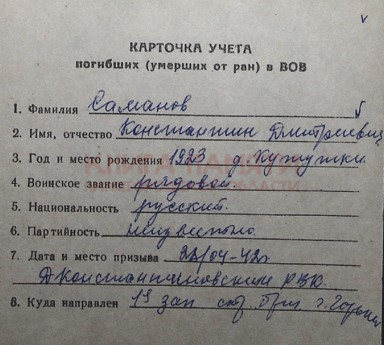 КАРТОЧКА УЧЕТА
погибших (умерших от ран) в ВОВ
1. Фамилия Саманов
2. Имя, отчество Константин Дмитриевич
3. Год и место рождения 1923 д. Кутутки
4. Воинское звание рядовой.
5. Национальность русский.
6. Партийность неизвестно.
7. Дата и место призыва 22/04-42г
Дконстантиновским РВК.
8. Куда направлен 19 зап стр. бриг г. Горький